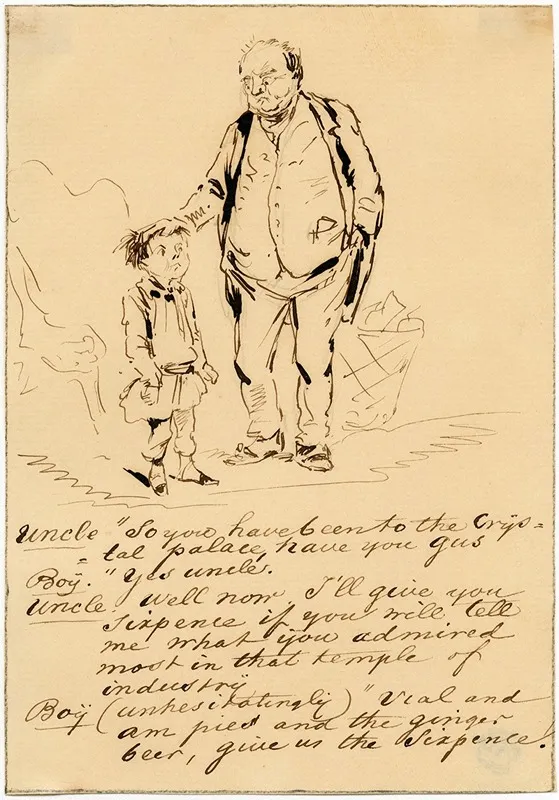 Uncle "So you have been to the Crys=
= tal palace, have you gus
Boy. "Yes uncle.
Uncle. Well now I'll give you
Sixpence if you will tell
me what you admired
most in that temple of
industry
Boy (unhesitatingly) "Vial and
am pies and the ginger
beer, give us the Sixpence!